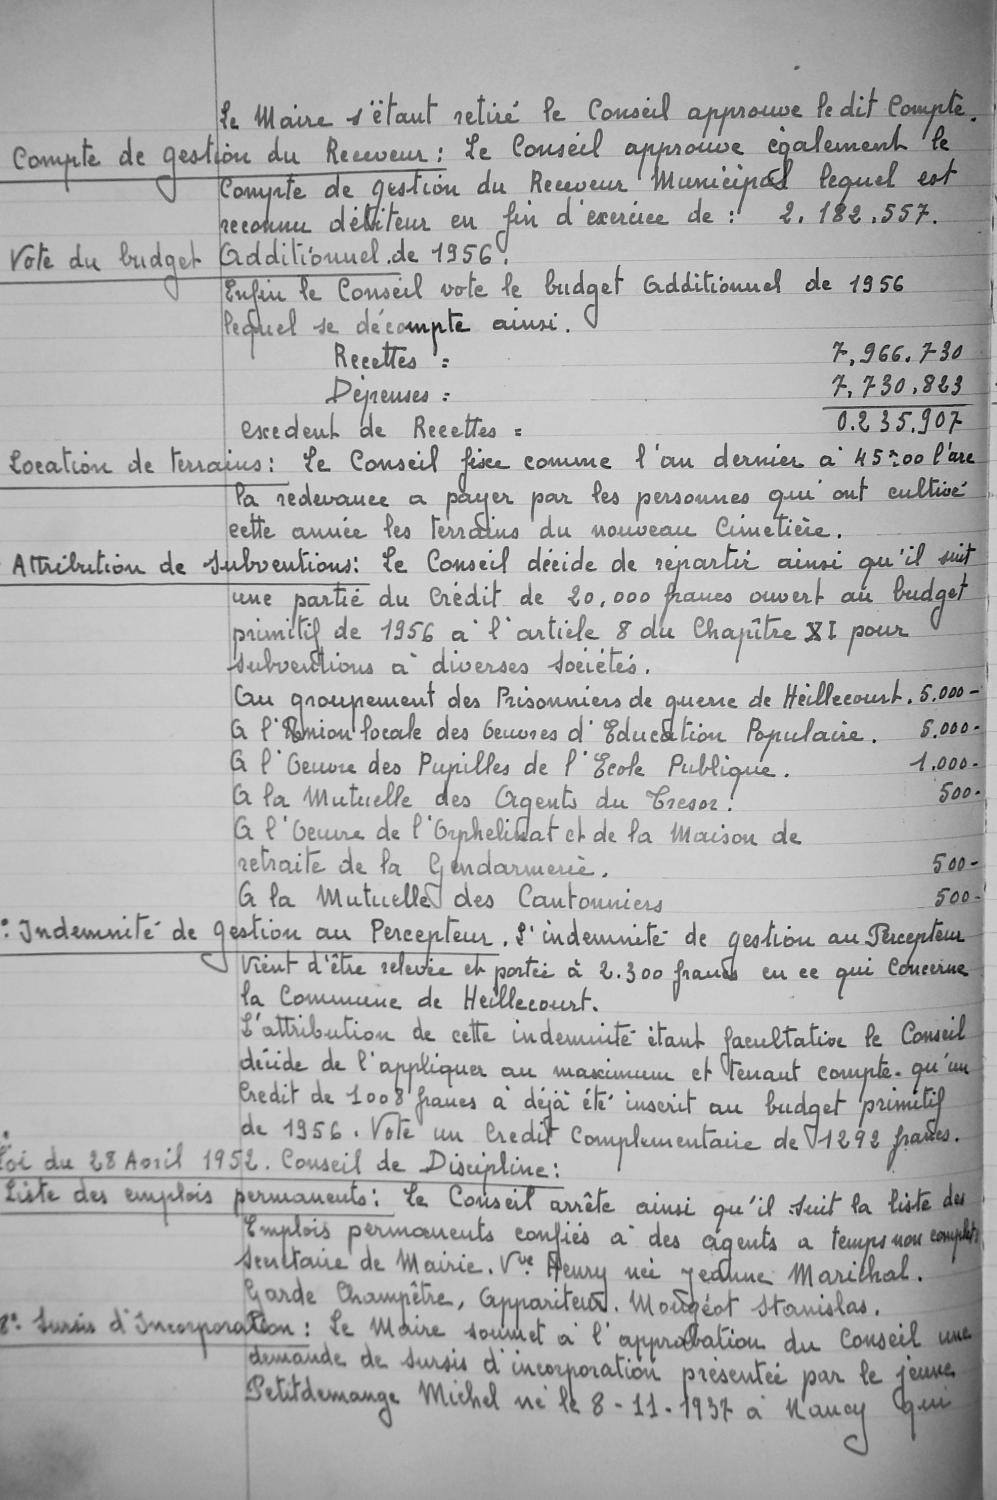 Le Maire s'étant retiré le Conseil approuve le dit Compte.
Compte de gestion du Receveur : Le Conseil approuve également le
Compte de gestion du Receveur Municipal lequel est
reconnu débiteur en fin d'exercice de : 2.182.557.
Vote du budget Additionnel de 1956.
Enfin le Conseil vote le budget Additionnel de 1956
lequel se décompte ainsi.
Recettes = 7,966.730
Dépenses = 7,730,823
excedent de Recettes = 0.235.907
Location de terrains : Le Conseil fixe comme l'an dernier à 45f00 l'are
la redevance a payer par les personnes qui ont cultivé
cette année les terrains du nouveau Cimetière.
Attribution de Subventions : Le Conseil décide de répartir ainsi qu'il suit
une partie du Crédit de 20,000 francs ouvert au budget
primitif de 1956 à l'article 8 du Chapître XI pour
subventions à diverses sociétés.
Au groupement des Prisonniers de guerre de Heillecourt. 5.000-
A l'Union locale des Oeuvres d'Education Populaire. 5.000-
A l'Oeuvre des Pupilles de l'Ecole Publique. 1.000-
A la Mutuelle des Agents du Tresor. 500-
A l'Oeuvre de l'Orphelinat et de la Maison de
retraite de la Gendarmerie. 500-
A la Mutuelle des Cantonniers 500-
Indemnité de gestion au Percepteur. L'indemnité de gestion au Percepteur
vient d'être relevée et portée à 2.300 francs en ce qui Concerne
la Commune de Heillecourt.
L'attribution de cette indemnité étant facultative le Conseil
décide de l'appliquer au maximum et tenant compte qu'un
Credit de 1008 francs à déjà été inscrit au budget primitif
de 1956. Vote un Credit Complementaire de 1292 francs.
Loi du 28 Avril 1952. Conseil de Discipline :
Liste des emplois permanents : Le Conseil arrête ainsi qu'il suit la liste des
Emplois permanents confiés à des agents a temps non complets
Secrétaire de Mairie. Vve Henry née Jeanne Marichal.
Garde Champêtre, Appariteur. Mougeot Stanislas.
8° Sursis d'Incorporation : Le Maire soumet à l'approbation du Conseil une
demande de sursis d'incorporation présentée par le jeune
Petitdemange Michel né le 8-11-1937 à Nancy qui